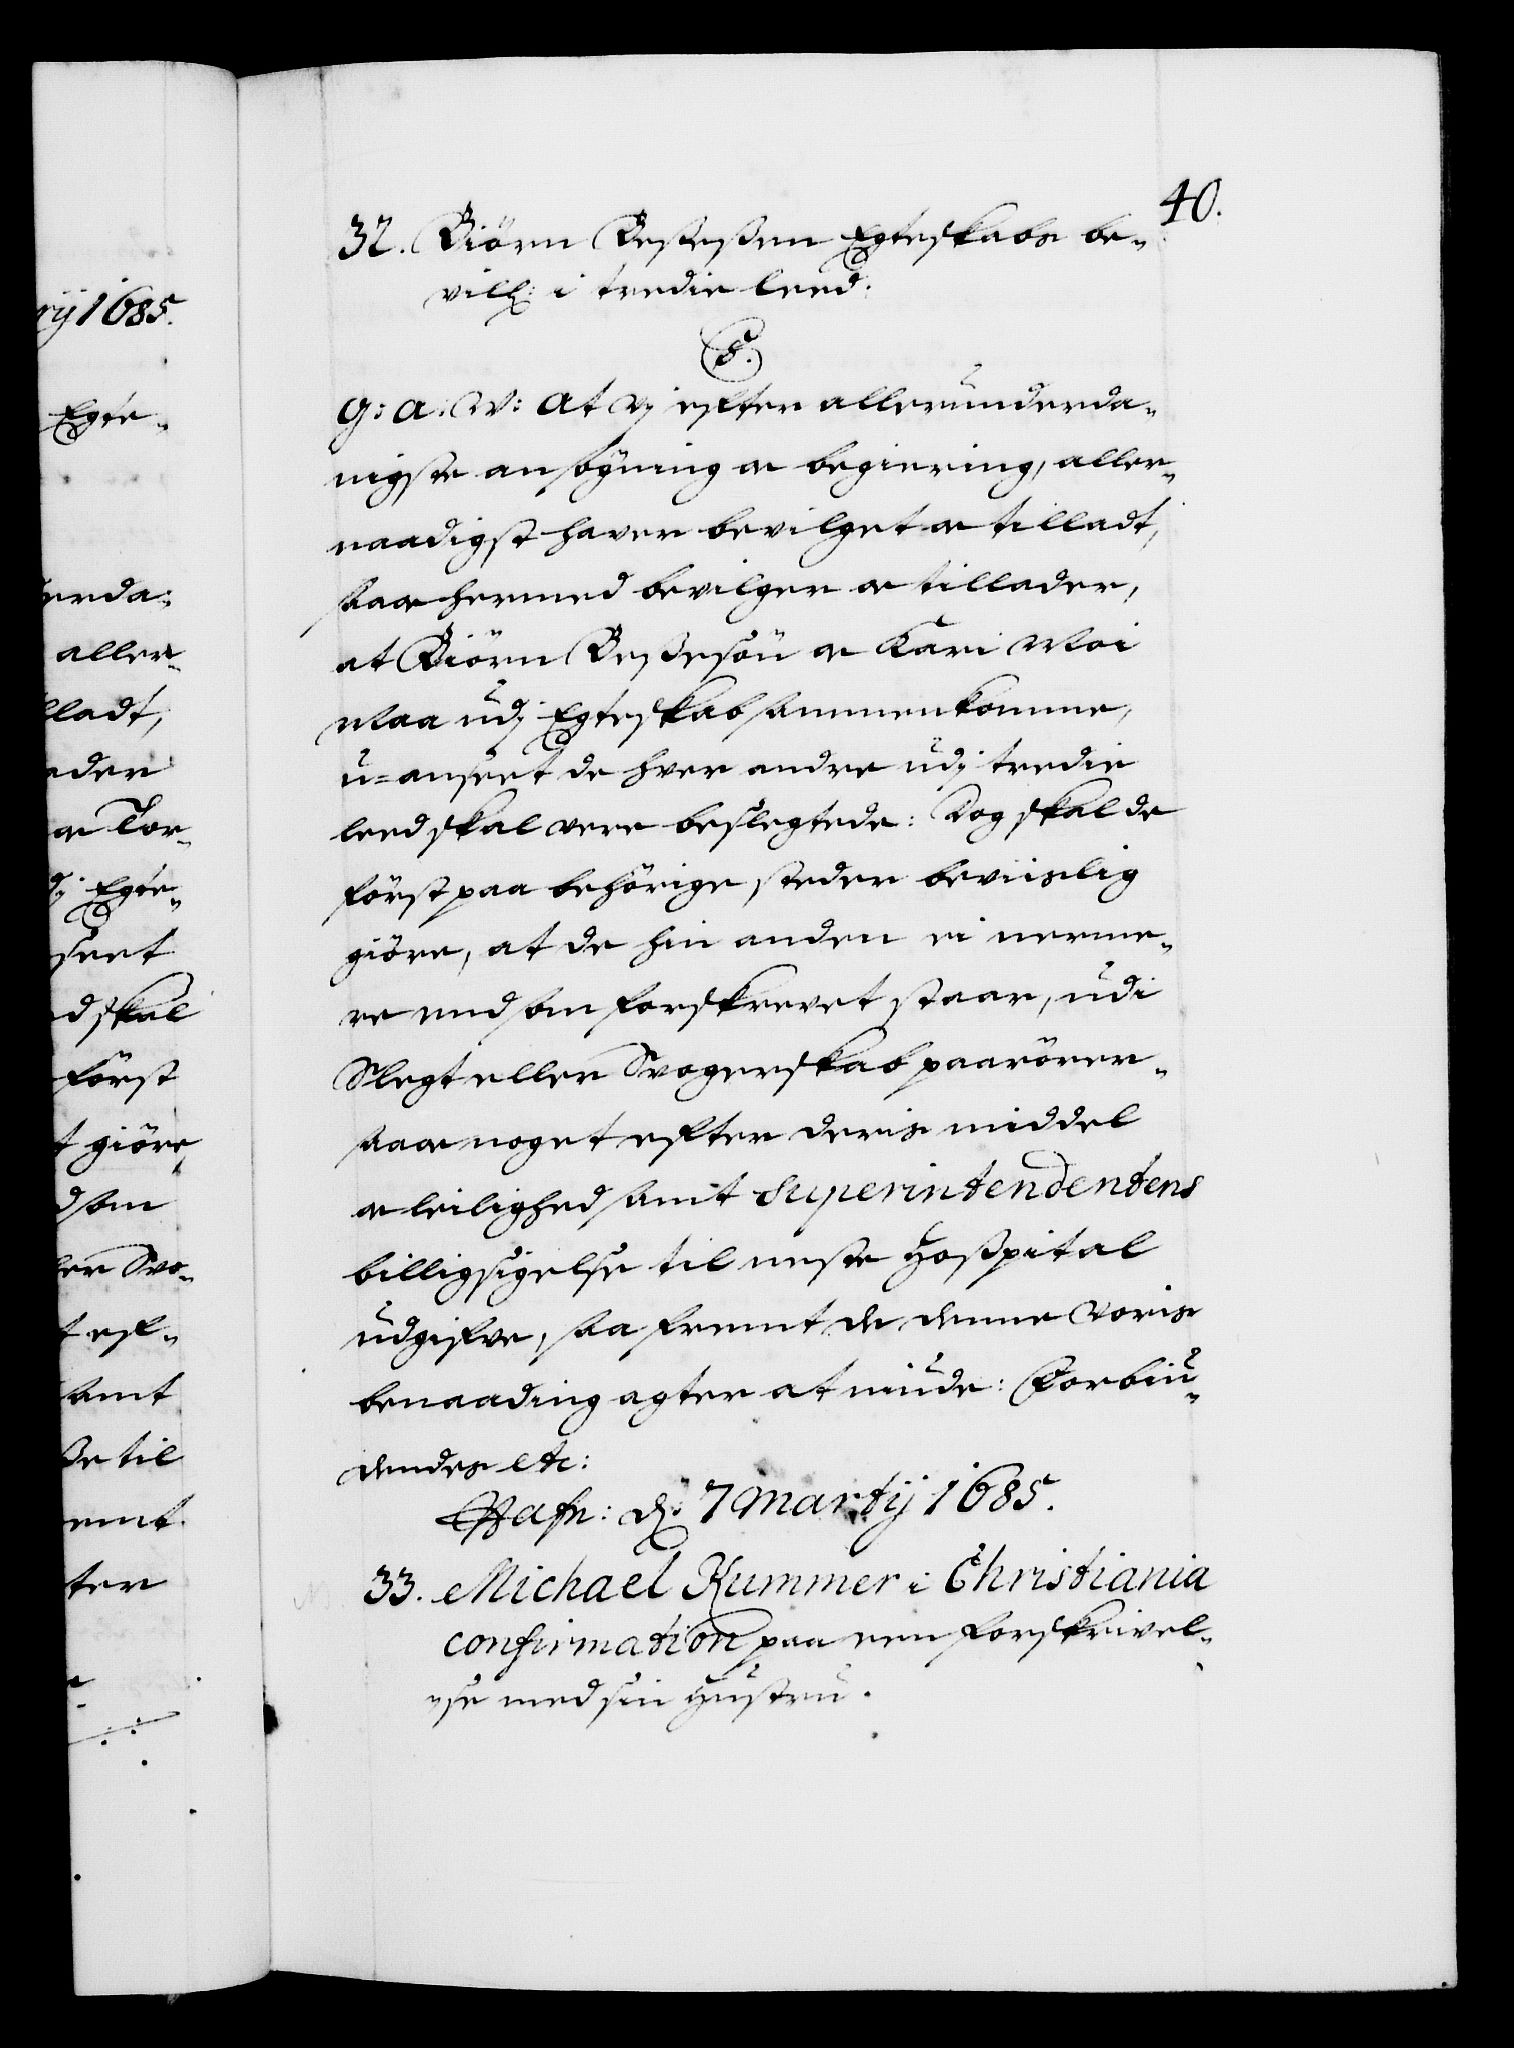 40.
32. Biörn Besteßen Egteskabs be-
vill: i tredie leed:
C5.
G: A: W: At Vj efter allerunderda-
nigste ansøgning oc begiering, aller-
naadigst haver bevilget oc tilladt,
saa oc hermed bevilger oc tillader,
at Biörn Besteßön oc Kari Moi
Maa udj Egteskab sammenkomme,
u-anseet de hver andre udj tredie
leed skal vere beslegtede: Dog skal de
först paa behörige steder beviislig
giöre, at de hin anden ei nerme-
re end som forskrevet staar, udi
Slegt eller Svogerskab paarörer-
saa oc noget efter deris middel
oc leilighed samt Superintendentens
billigsigelse til neste Hospital
udgifve, saa fremt de denne Voris
benaading agter at niude: Forbiu-
dendes etc:
Hafn: d: 7 Martij 1685.
33. Michael Kummer i Christiania
confirmation paa een forskrivel-
se med sin Hustru.
rij 1685.
Egte-
erda-
aller-
ladt,
ader
oc Tor-
dj Egte-
seet
d skal
först
t giöre,
d som
ler Svo-
t ef-
samt
se til
emt
ter